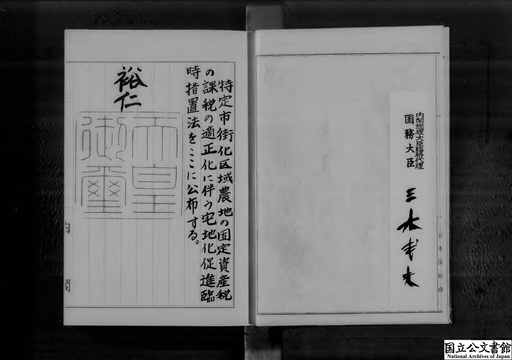 特定市街化区域農地の固定資産税
の課税の適正化に伴う宅地化促進臨
時措置法をここに公布する。
裕仁
天皇
御璽
内閣総理大臣臨時代理
国務大臣
三木武夫
国立公文書館
National Archives of Japan